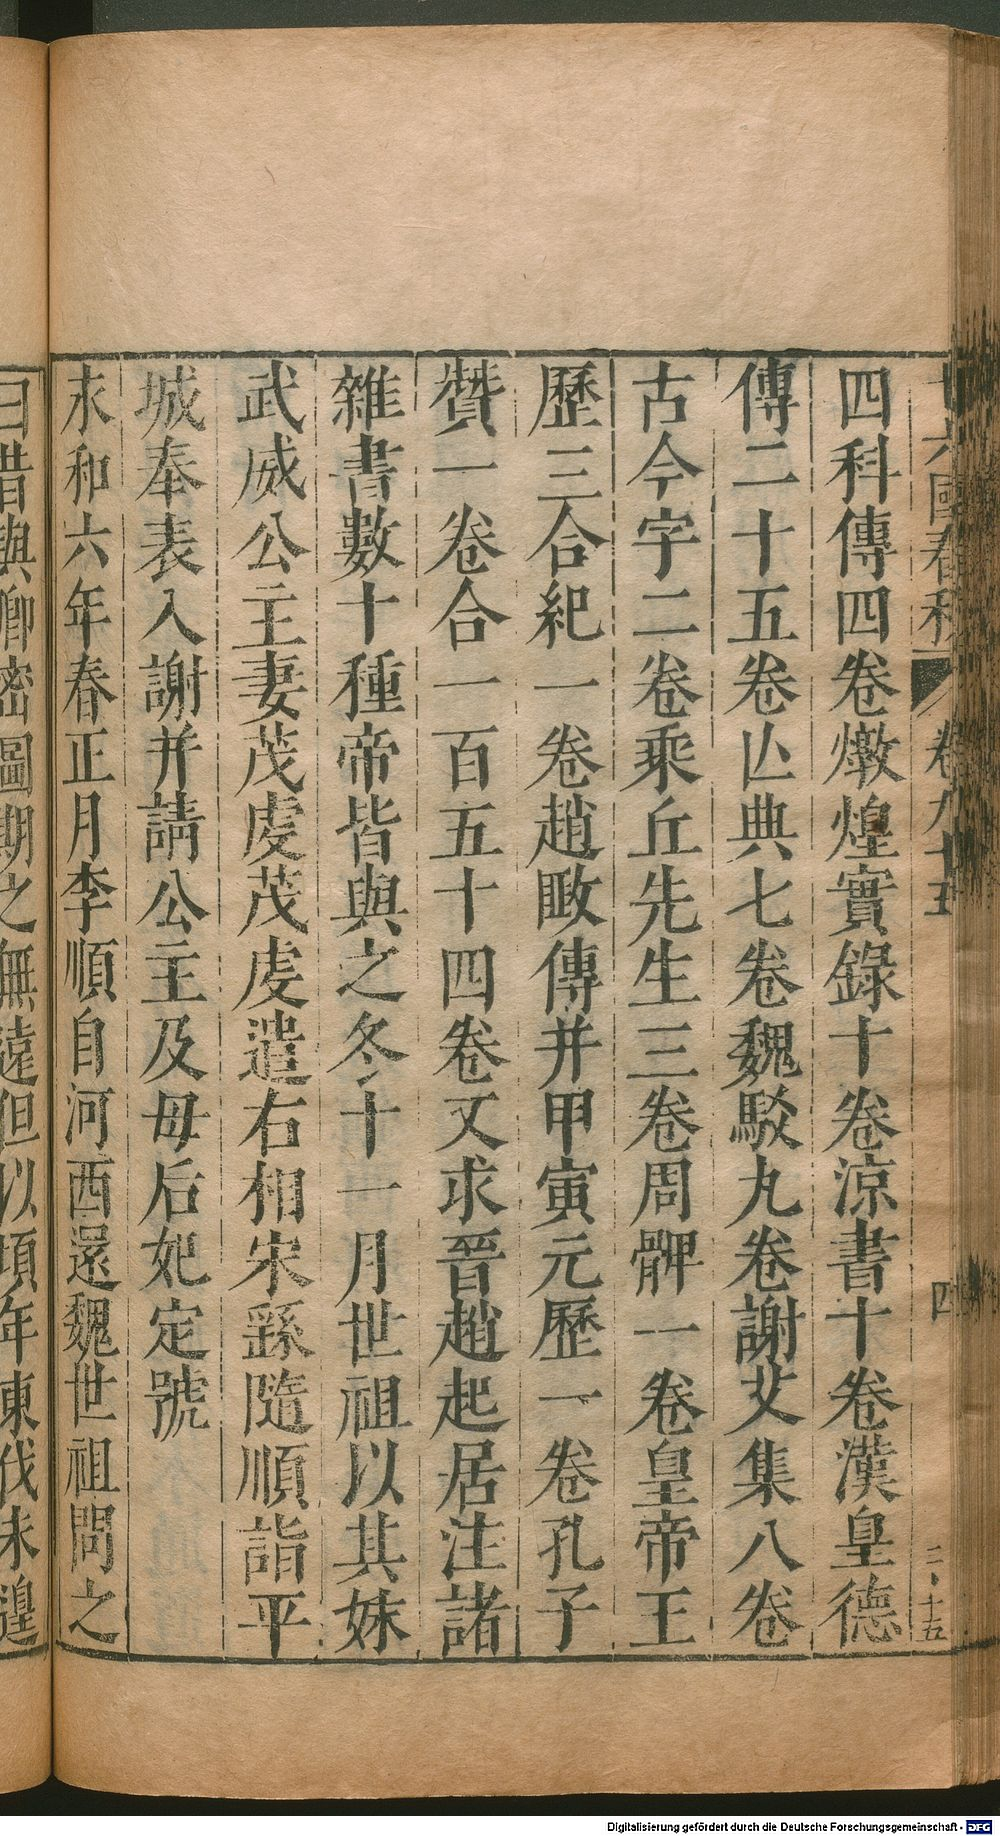 十六國春秋 卷九十五 四
四科傳四卷燉煌實錄十卷涼書十卷漢皇德
傳二十五卷亾典七卷魏駁九卷謝艾集八卷
古今字二卷乘丘先生三卷周髀一卷皇帝王
歷三合紀一卷趙𢾺傳并甲寅元歷一卷孔子
贊一卷合一百五十四卷又求晉趙起居注諸
雜書數十種帝皆與之冬十一月世祖以其妹
武威公主妻茂虔茂虔遣右相宋繇隨順詣平
城奉表入謝并請公主及毋后妃定號
永和六年春正月李順自河西還魏世祖問之
曰昔與卿密圖期之無遠但以頃年東伐未遑
Digitalisierung gefördert durch die Deutsche Forschungsgemeinschaft - DFG